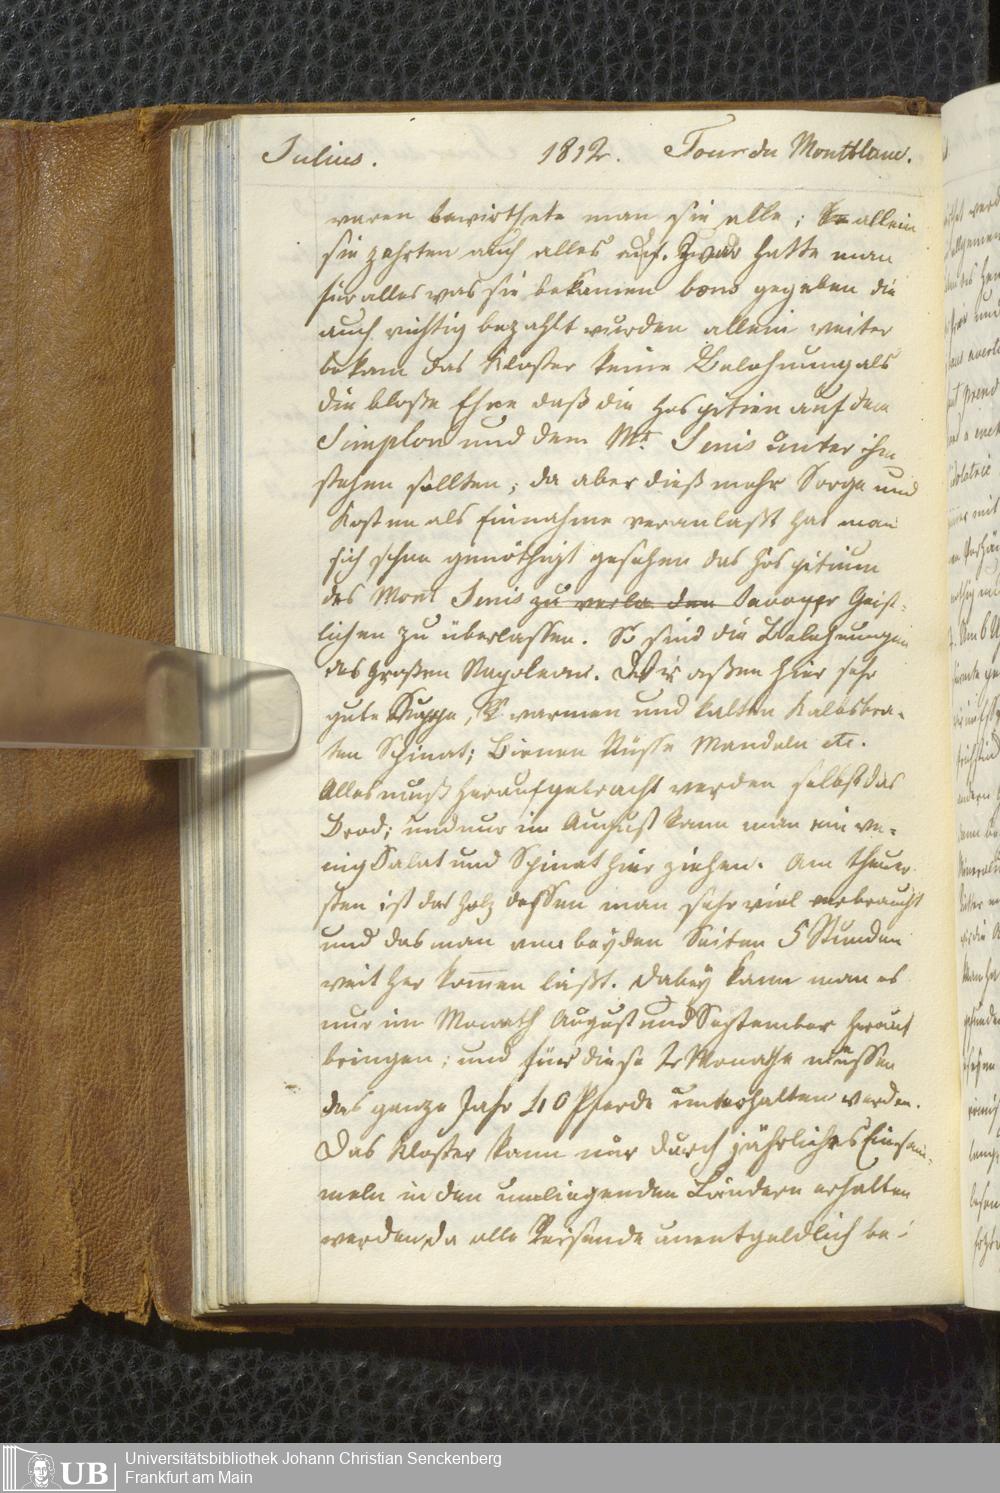 Julius. 1812. Tour du Montblanc.
waren bewirthete man sie alle; allein
sie zehrten auch alles auf. Zwar hatte man
für alles was sie bekamen bons gegeben die
auch richtig bezahlt wurden allein weiter
bekam das Kloster keine Belohnung als
die bloße Ehre daß die Hospitien auf dem
Simplon und dem Mt. Senis unter ihm
stehen sollten; da aber dieß mehr Sorge und
Kosten als Einnahme veranlaßt hat man
sich schon genöthigt gesehen das Hospitium
des Mont Senis zu verla den Savoyer Geist-
lichen zu überlassen. So sind die Belohnungen
des großen Napoleons. Wir aßen hier sehr
gute Suppe, warmen und kalten Kalbsbra-
ten Spinat; Birnen Nüsse Mandeln etc.
Alles muß heraufgebracht werden selbst das
Brod; und nur im August kann man ein we-
nig Salat und Spinat hier ziehen. Am theuer
sten ist das Holz dessen man sehr viel verbraucht
und das man von beyden Seiten 5 Stunden
weit her kommen läßt. Dabey kann man es
nur im Monath August und September herauf
bringen; und für diese 2 Monathe müssen
das ganze Jahr 40 Pferde unterhalten werden.
Das Kloster kann nur durch jährliches Einsam-
meln in den umliegenden Ländern erhalten
werden, da alle Reisende unentgeldlich be-
UB
Universitätsbibliothek Johann Christian Senckenberg
Frankfurt am Main